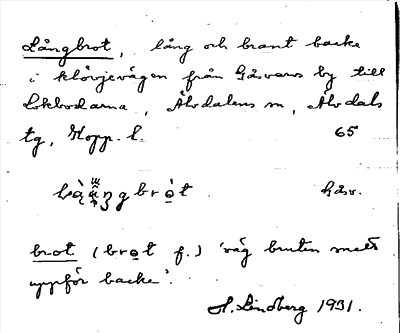 Långbrot, lång och brant backe
i klövjevägen från Gåsvarv by till
Lokbodarna, Älvdalens sn, Älvdals
tg, Kopp. l. 65
Gåsv.
brot (brot f.) 'väg bruten mest
uppför backe'.
H. Lindberg 1931.